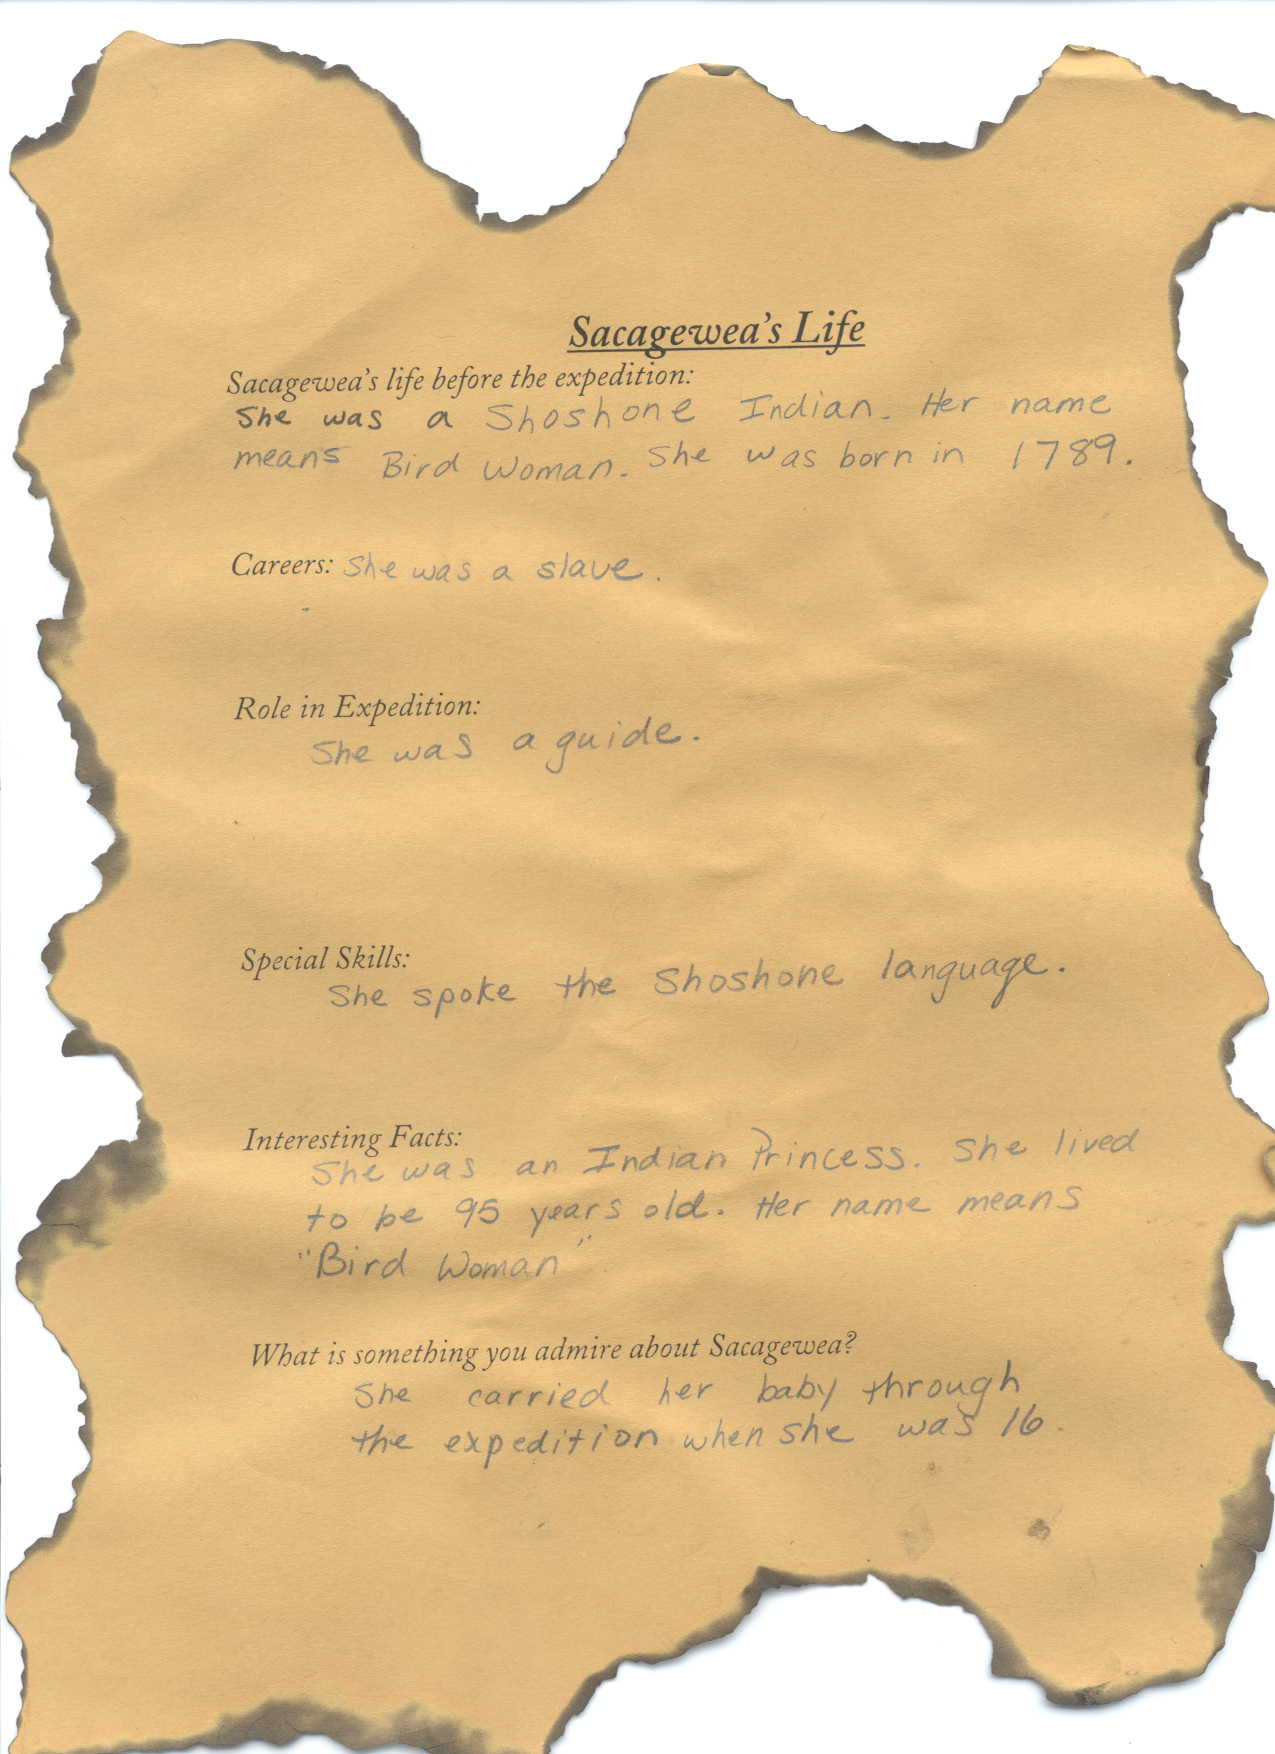 Sacagewea's Life
Sacagewea's life before the expedition:
She was a Shoshone Indian. Her name
means Bird Woman. She was born in 1789.
Careers: She was a slave.
Role in Expedition:
She was a guide.
Special Skills:
She spoke the Shoshone language.
Interesting Facts:
She was an Indian Princess. She lived
to be 95 years old. Her name means
"Bird Woman"
What is something you admire about Sacagewea?
She carried her baby through
the expedition when she was 16.